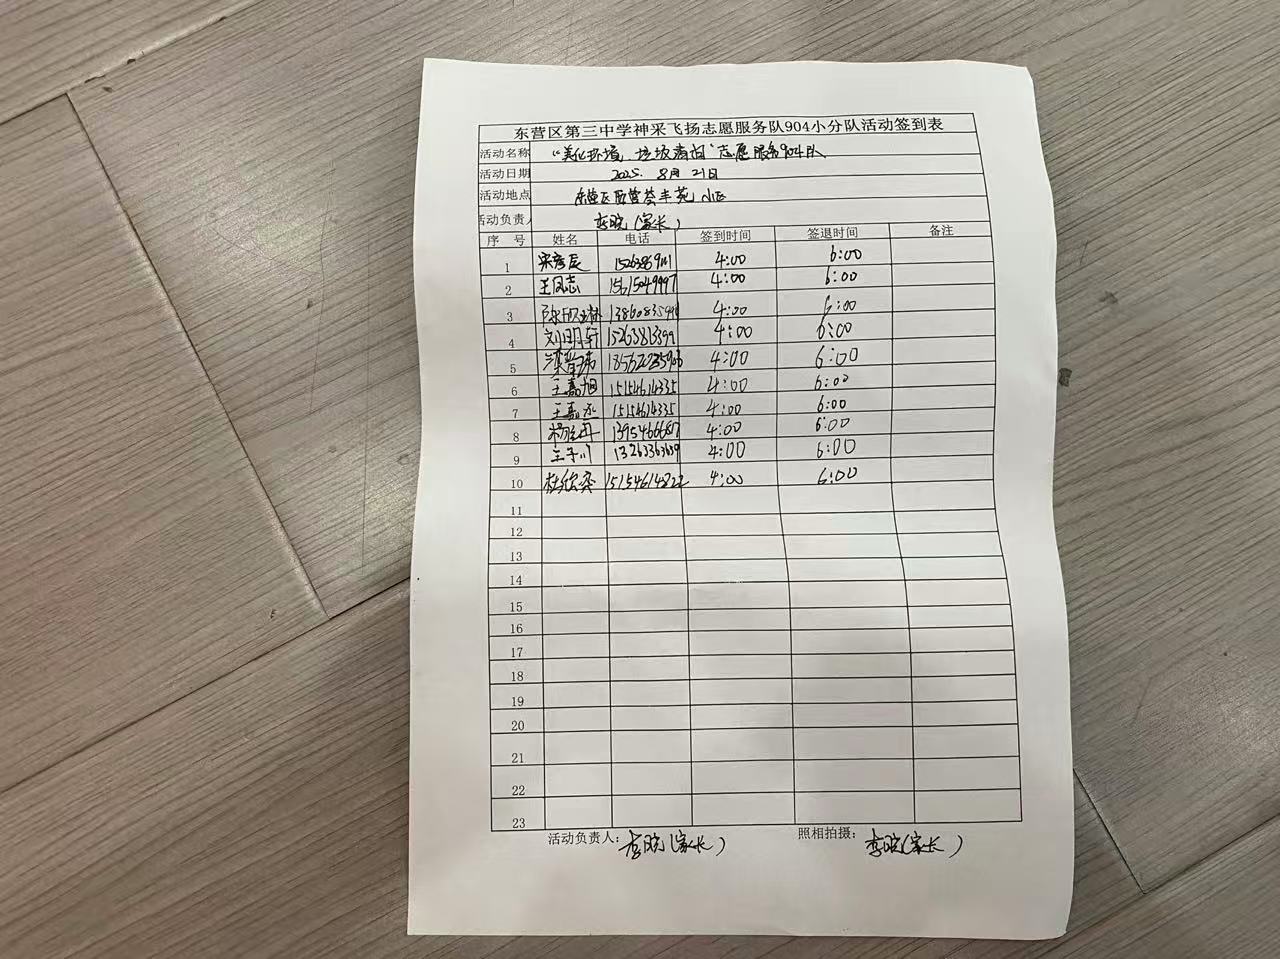 东营区第三中学神采飞扬志愿服务队904小分队活动签到表
活动名称 "美化环境,垃圾清扫"志愿服务904队
活动日期 2025. 8月 21日
活动地点 东营区西营荟丰苑 小区
活动负责人 李晓(家长)
序 号 姓名 电话 签到时间 签退时间 备注
1 宋彦辰 4:00 6:00
2 王凤志 4:00 6:00
3 4:00 6:00
4 刘明轩 15263813399 4:00 6:00
5 4:00 6:00
6 王嘉旭 15154614335 4:00 6:00
7 王嘉丞 15154614335 4:00 6:00
8 4:00 6:00
9 王子川 13263363639 4:00 6:00
10 杜欣奕 15154614822 4:00 6:00
11
12
13
14
15
16
17
18
19
20
21
22
23
活动负责人: 李晓(家长) 照相拍摄: 李晓(家长)